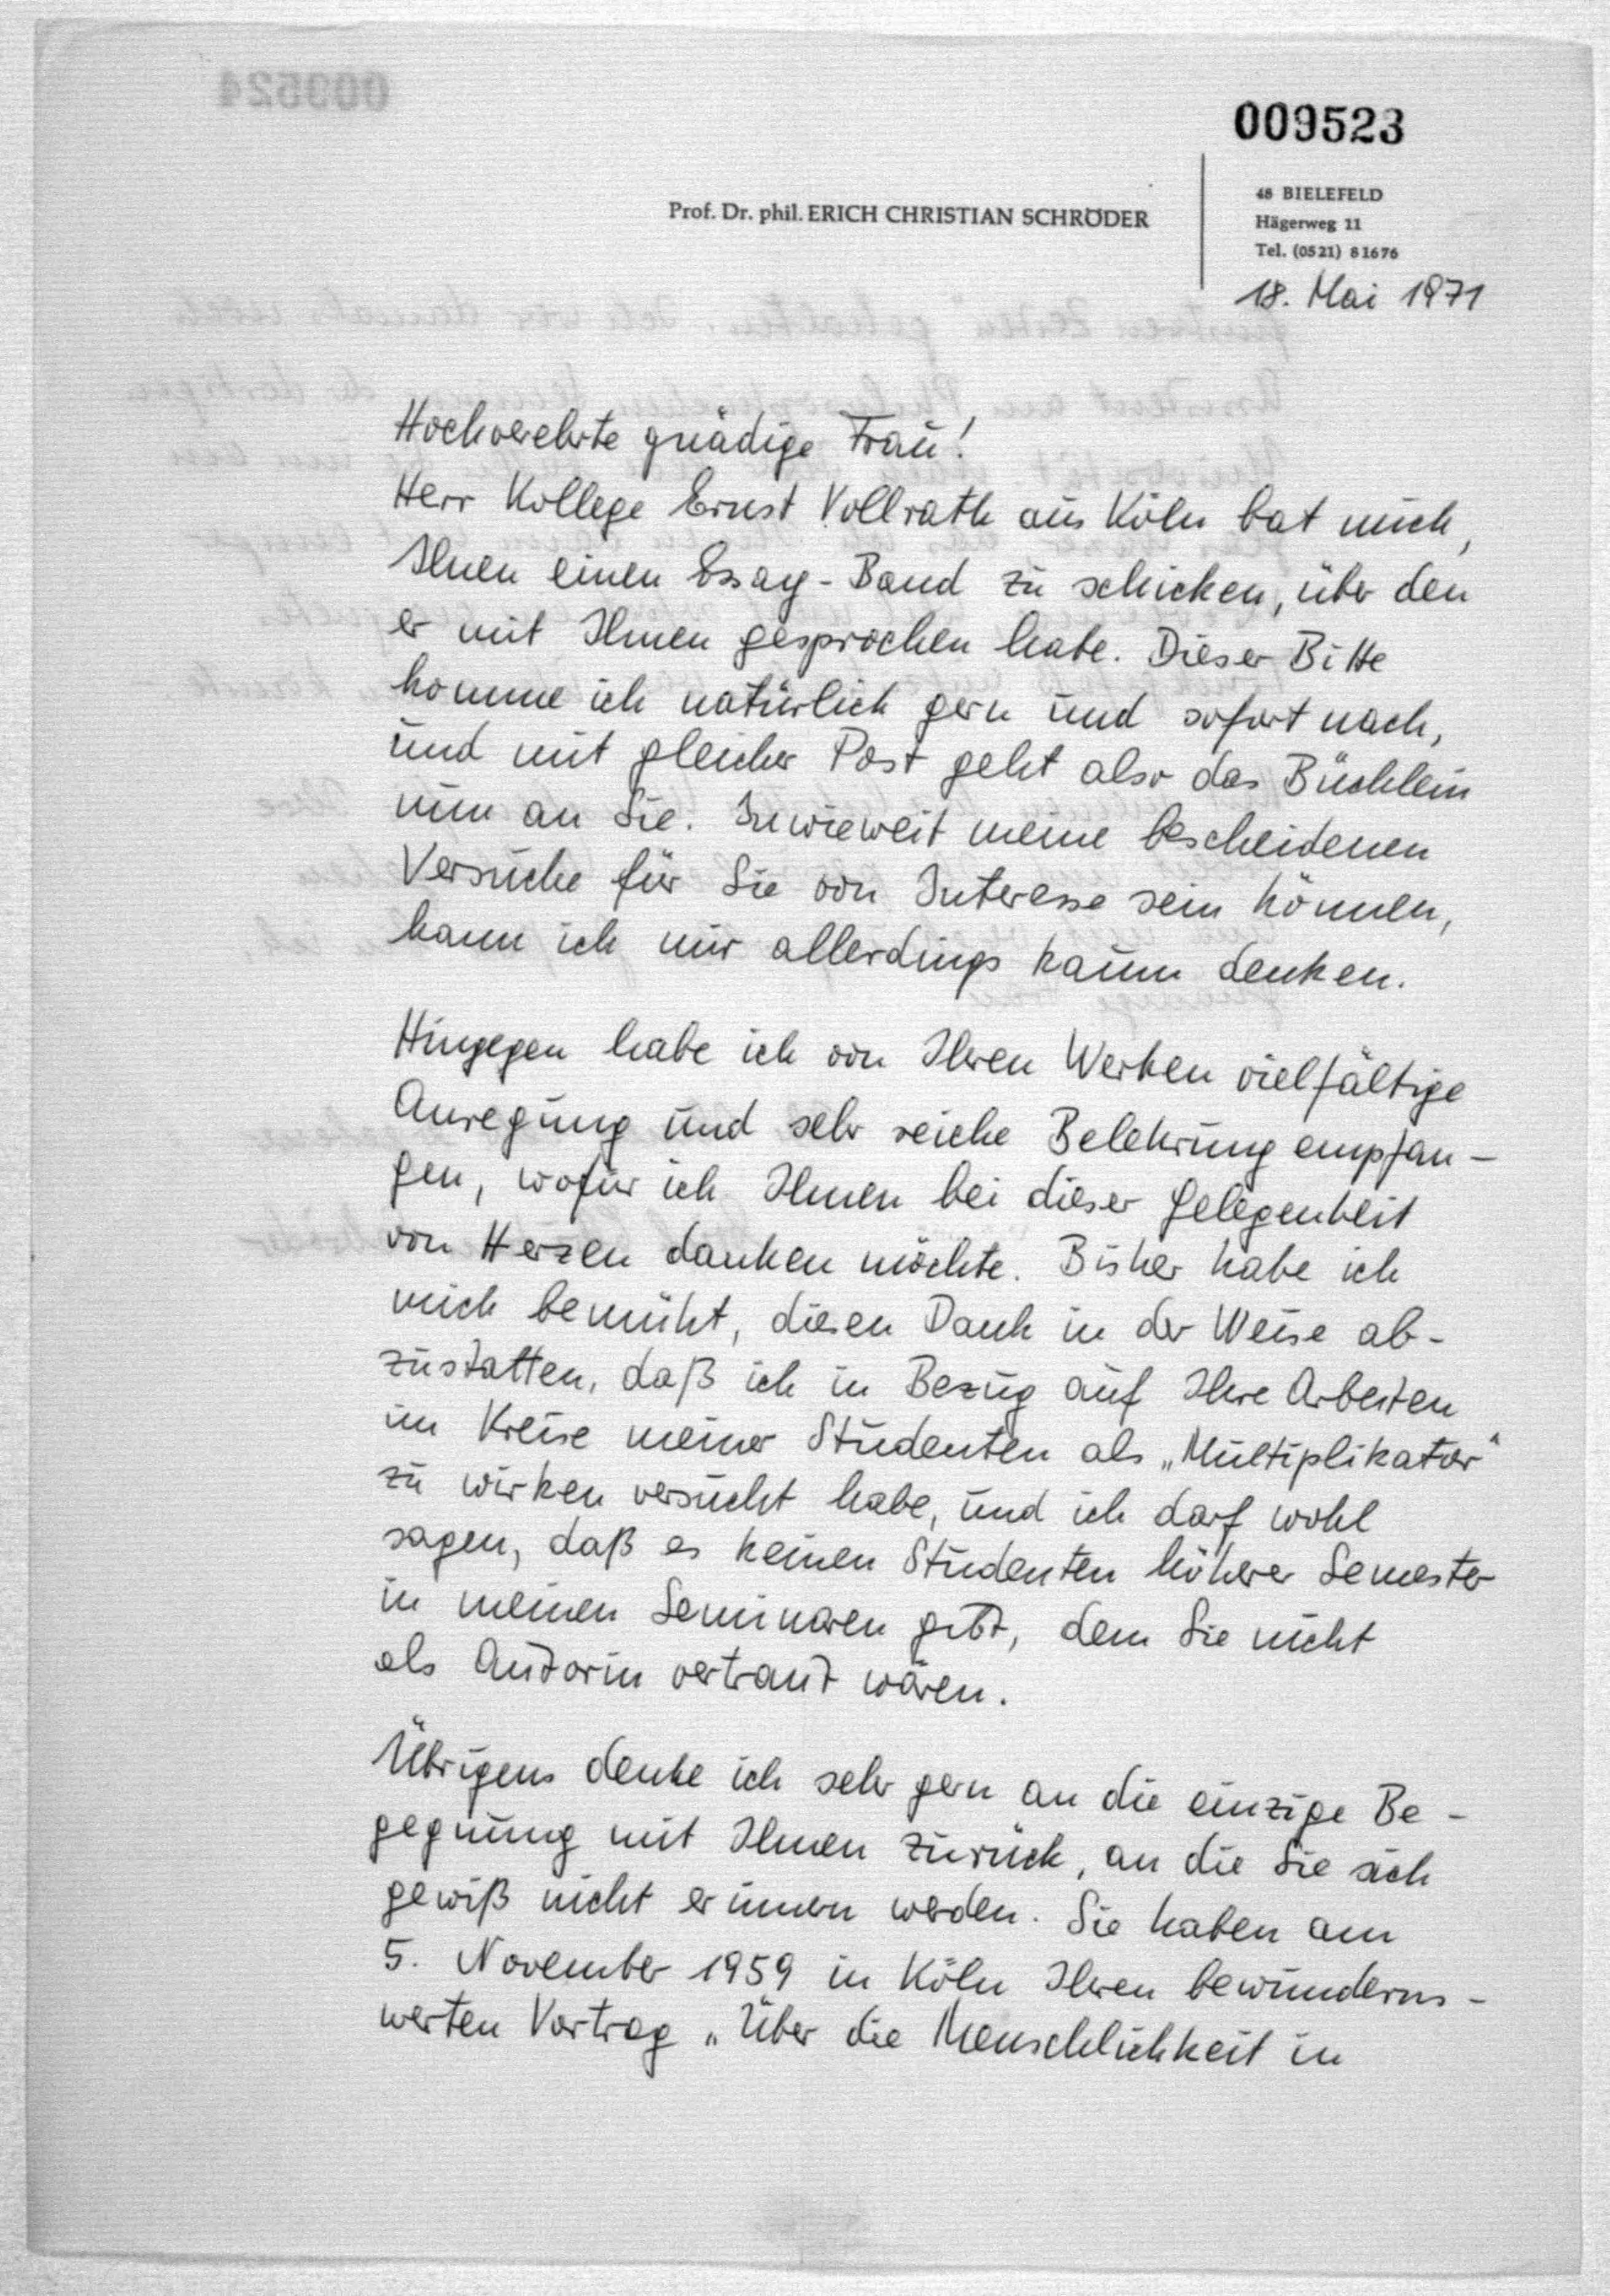 009523
Prof. Dr. phil. ERICH CHRISTIAN SCHRÖDER
48 BIELEFELD
Hägerweg 11
Tel. (0521) 81676
18. Mai 1971
Hochverehrte gnädige Frau!
Herr Kollege Ernst Vollrath aus Köln bat mich,
Ihnen einen Essay-Band zu schicken, über den
er mit Ihnen gesprochen habe. Dieser Bitte
komme ich natürlich gern und sofort nach,
und mit gleicher Post geht also das Büchlein
nun an Sie. Inwieweit meine bescheidenen
Versuche für Sie von Interesse sein können,
kann ich mir allerdings kaum denken.
Hingegen habe ich von Ihren Werken vielfältige
Anregung und sehr reiche Belehrung empfan-
gen, wofür ich Ihnen bei dieser Gelegenheit
von Herzen danken möchte. Bisher habe ich
mich bemüht, diesen Dank in der Weise ab-
zustatten, daß ich in Bezug auf Ihre Arbeiten
im Kreise meiner Studenten als „Multiplikator“
zu wirken versucht habe, und ich darf wohl
sagen, daß es keinen Studenten höherer Semester
in meinen Seminaren gibt, dem Sie nicht
als Autorin vertraut wären.
Übrigens denke ich sehr gern an die einzige Be-
gegnung mit Ihnen zurück, an die Sie sich
gewiß nicht erinnern werden. Sie haben am
5. November 1959 in Köln Ihren bewunderns-
werten Vortrag „Über die Menschlichkeit in